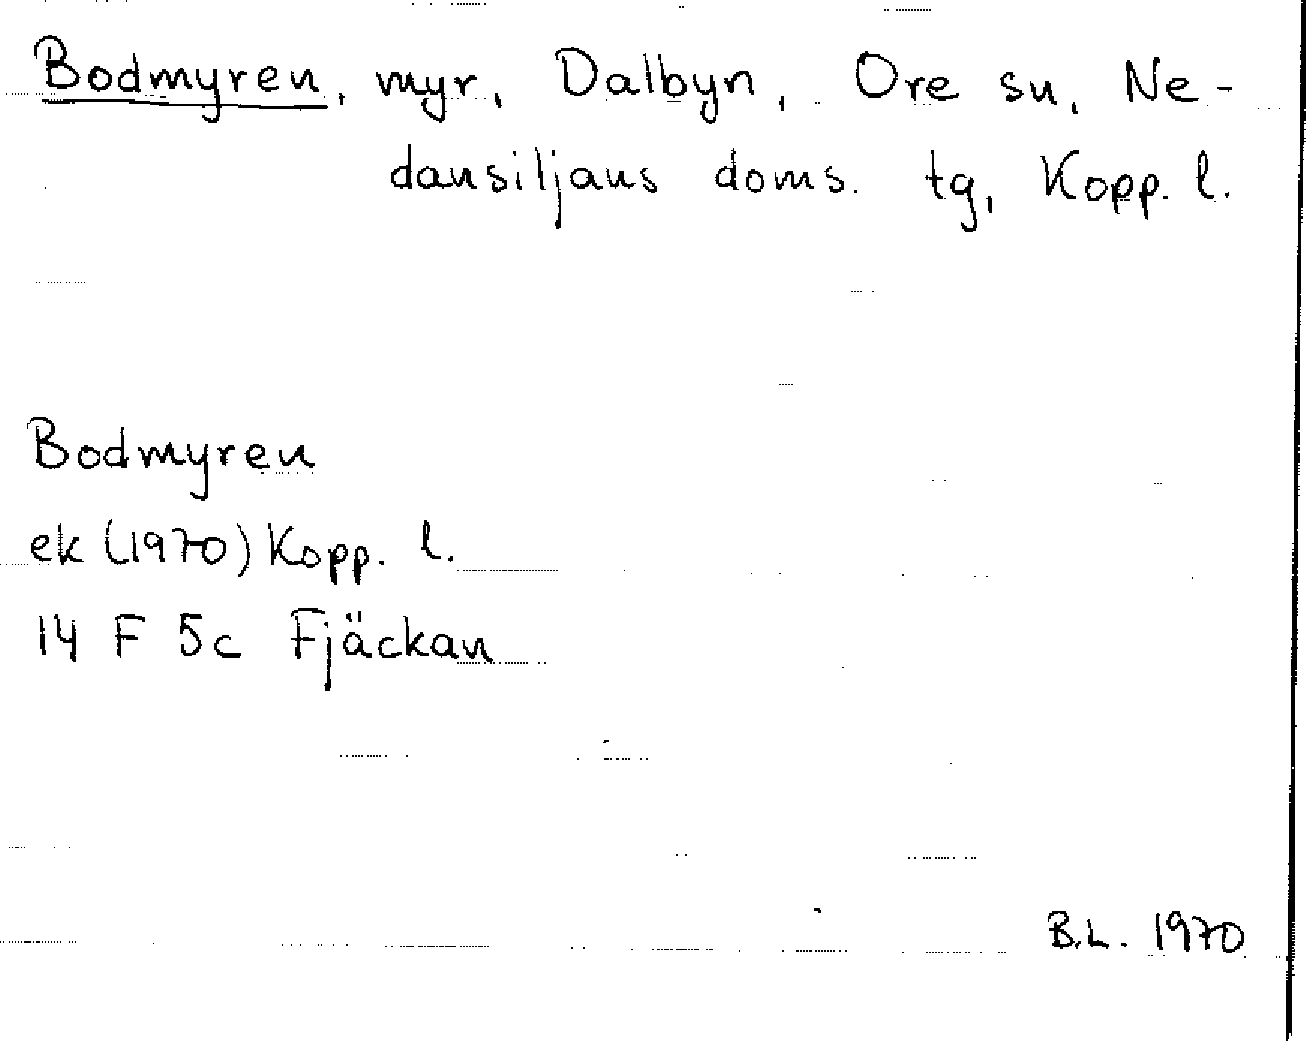 Bodmyren, myr, Dalbyn, Ore sn, Ne-
dansiljans doms. tg, Kopp. l.
Bodmyren
ek (1970) Kopp. l.
14 F 5c Fjäckan
B.L. 1970